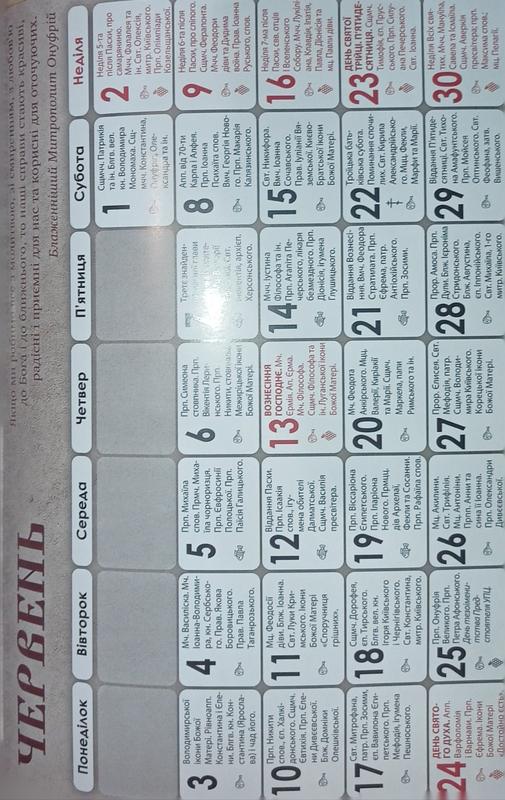 до Бога і до ближнього, то наші справи стають красиві,
радісні і приємні для нас та корисні для оточуючих.
Блаженніший Митрополит Онуфрій
ЧЕРВЕНЬ
Понеділок
Вівторок
Середа
Четвер
П'ятниця
Субота
Неділя
1
Сщмч. Патрикія
та ін. Блгв. вел.
кн. Володимира
Мономаха.
мчч. Константина,
2
Неділя 5-та
після Пасхи, про
самарянину.
Мчч. Фалалея та
ін. Свт. Олексія,
митр. Київського.
Прп. Олімпіади
3
Володимирської
ікони Божої
Матері. Рівноапп.
Константина і Єле-
ни. Блгв. кн. Кон-
стантина (Яросла-
ва) і чад його.
4
Мч. Василіска. Мч.
Іоанна-Володими-
ра, кн. Сербсько-
го. Прав. Якова
Боровицького.
Прав. Павла
Таганрозького.
5
Прп. Михаїла
спов. Прмч. Миха-
їла чорноризця.
Прп. Євфросинії
Полоцької. Прп.
Паїсія Галицького.
6
Прп. Симона
стовпника. Прп.
Вікентія Лери-
нського. Прп.
Никити, стовпника.
Межиріцької ікони
Божої Матері.
7
Третє знайден-
Херсонського.
8
Апп. від 70-ти
Карпа і Алфея.
Прп. Іоанна
Психаїта спов.
Вмч. Георгія Ново-
го. Прп. Макарія
Калязинського.
9
Неділя 6-та після
Пасхи, про сліпого.
Сщмч. Ферапонта.
Мчч. Феодори
діви та Дидима
воїна. Прав. Іоанна
Руського, спов.
10
Прп. Никити
спов., єп. Халкі-
донського. Сщмч.
Євтихія. Прп. Єле-
ни Дивеєвської.
Блж. Домніки
Олешківської.
11
Мц. Феодосії
діви. Блж. Іоанна.
Свт. Луки Кри-
мського. Ікони
Божої Матері
«Споручниця
грішних».
12
Віддання Пасхи.
Прп. Ісаакія
спов., ігу-
мена обителі
Далматської.
Сщмч. Василія
пресвітера.
13
ВОЗНЕСІННЯ
ГОСПОДНЄ. Ап.
Єрмія. Ап. Єрма.
Мч. Філософа.
Сщмч. Філософа та
ін. Луганської ікони
Божої Матері.
14
Мчч. Іустина
Філософа та ін.
Прп. Агапіта Пе-
черського, лікаря
безмездного. Прп.
Діонісія, ігумена
Глушицького.
15
Свт. Никифора.
Вмч. Іоанна
Сочавського.
Прав. Іуліанії Вя-
земської. Києво-
Братської ікони
Божої Матері.
16
Неділя 7-ма після
Пасхи, свв. отців
І Вселенського
Собору. Мчч. Лукилі-
ана, Клавдія, Іпатія,
Павла, Діонісія та
мц. Павли діви.
17
Свт. Митрофана,
патр. Прп. Зосими,
єп. Вавилона Єги-
петського. Прп.
Мефодія, ігумена
Пешноського.
18
Сщмч. Дорофея,
єп. Тирського.
Блгв. вел. кн.
Ігоря Київського
і Чернігівського.
Свт. Константина,
митр. Київського.
19
Прп. Віссаріона
Єгипетського.
Прп. Іларіона
Нового. Прмцц.
дів Архелаї,
Фекли та Сосанни.
Прп. Рафаїла спов.
20
Мч. Феодота
Анкірського. Мцц.
Валерії, Киріакії
та Марії. Сщмч.
Маркела, папи
Римського та ін.
21
Віддання Вознесі-
ння. Вмч. Феодора
Стратилата. Прп.
Єфрема, патр.
Антіохійського.
Прп. Зосими.
22
Троїцька бать-
ківська субота.
Поминання спочи-
лих. Свт. Кирила
Александрійсько-
го. Мцц. Фекли,
Марфи та Марії.
23
ДЕНЬ СВЯТОЇ
ТРІЙЦІ. П'ЯТИДЕ-
СЯТНИЦЯ. Сщмч.
Тимофія, єп. Прус-
ського. Прп. Силу-
ана Печерського.
Свт. Іоанна.
24
ДЕНЬ СВЯТО-
ГО ДУХА. Апп.
Варфоломія
і Варнави. Прп.
Єфрема. Ікони
Божої Матері
«Достойно єсть».
25
Прп. Онуфрія
Великого. Прп.
Петра Афонського.
День тезоімени-
тства Пред-
стоятеля УПЦ.
26
Мц. Акилини.
Свт. Трифілія.
Мц. Антоніни.
Прпп. Анни та
сина її Іоанна.
Прп. Олександри
Дивеєвської.
27
Прор. Єлисея. Свт.
Мефодія, патр.
Сщмч. Володи-
мира Київського.
Корецької ікони
Божої Матері.
28
Прор. Амоса. Прп.
Дули. Блж. Ієроніма
Стридонського.
Блж. Августина,
єп. Іппонійського.
Свт. Михаїла, 1-го
митр. Київського.
29
Віддання П'ятиде-
сятниці. Свт. Тихо-
на Амафунтського.
Прп. Моісея
Оптинського. Свт.
Феофана, затв.
Вишенського.
30
Неділя Всіх свя-
тих. Мчч. Мануїла,
Савела та Ісмаїла.
Сщмч. Аверкія
пресвітера; прп.
Максима спов.;
мц. Пелагії.